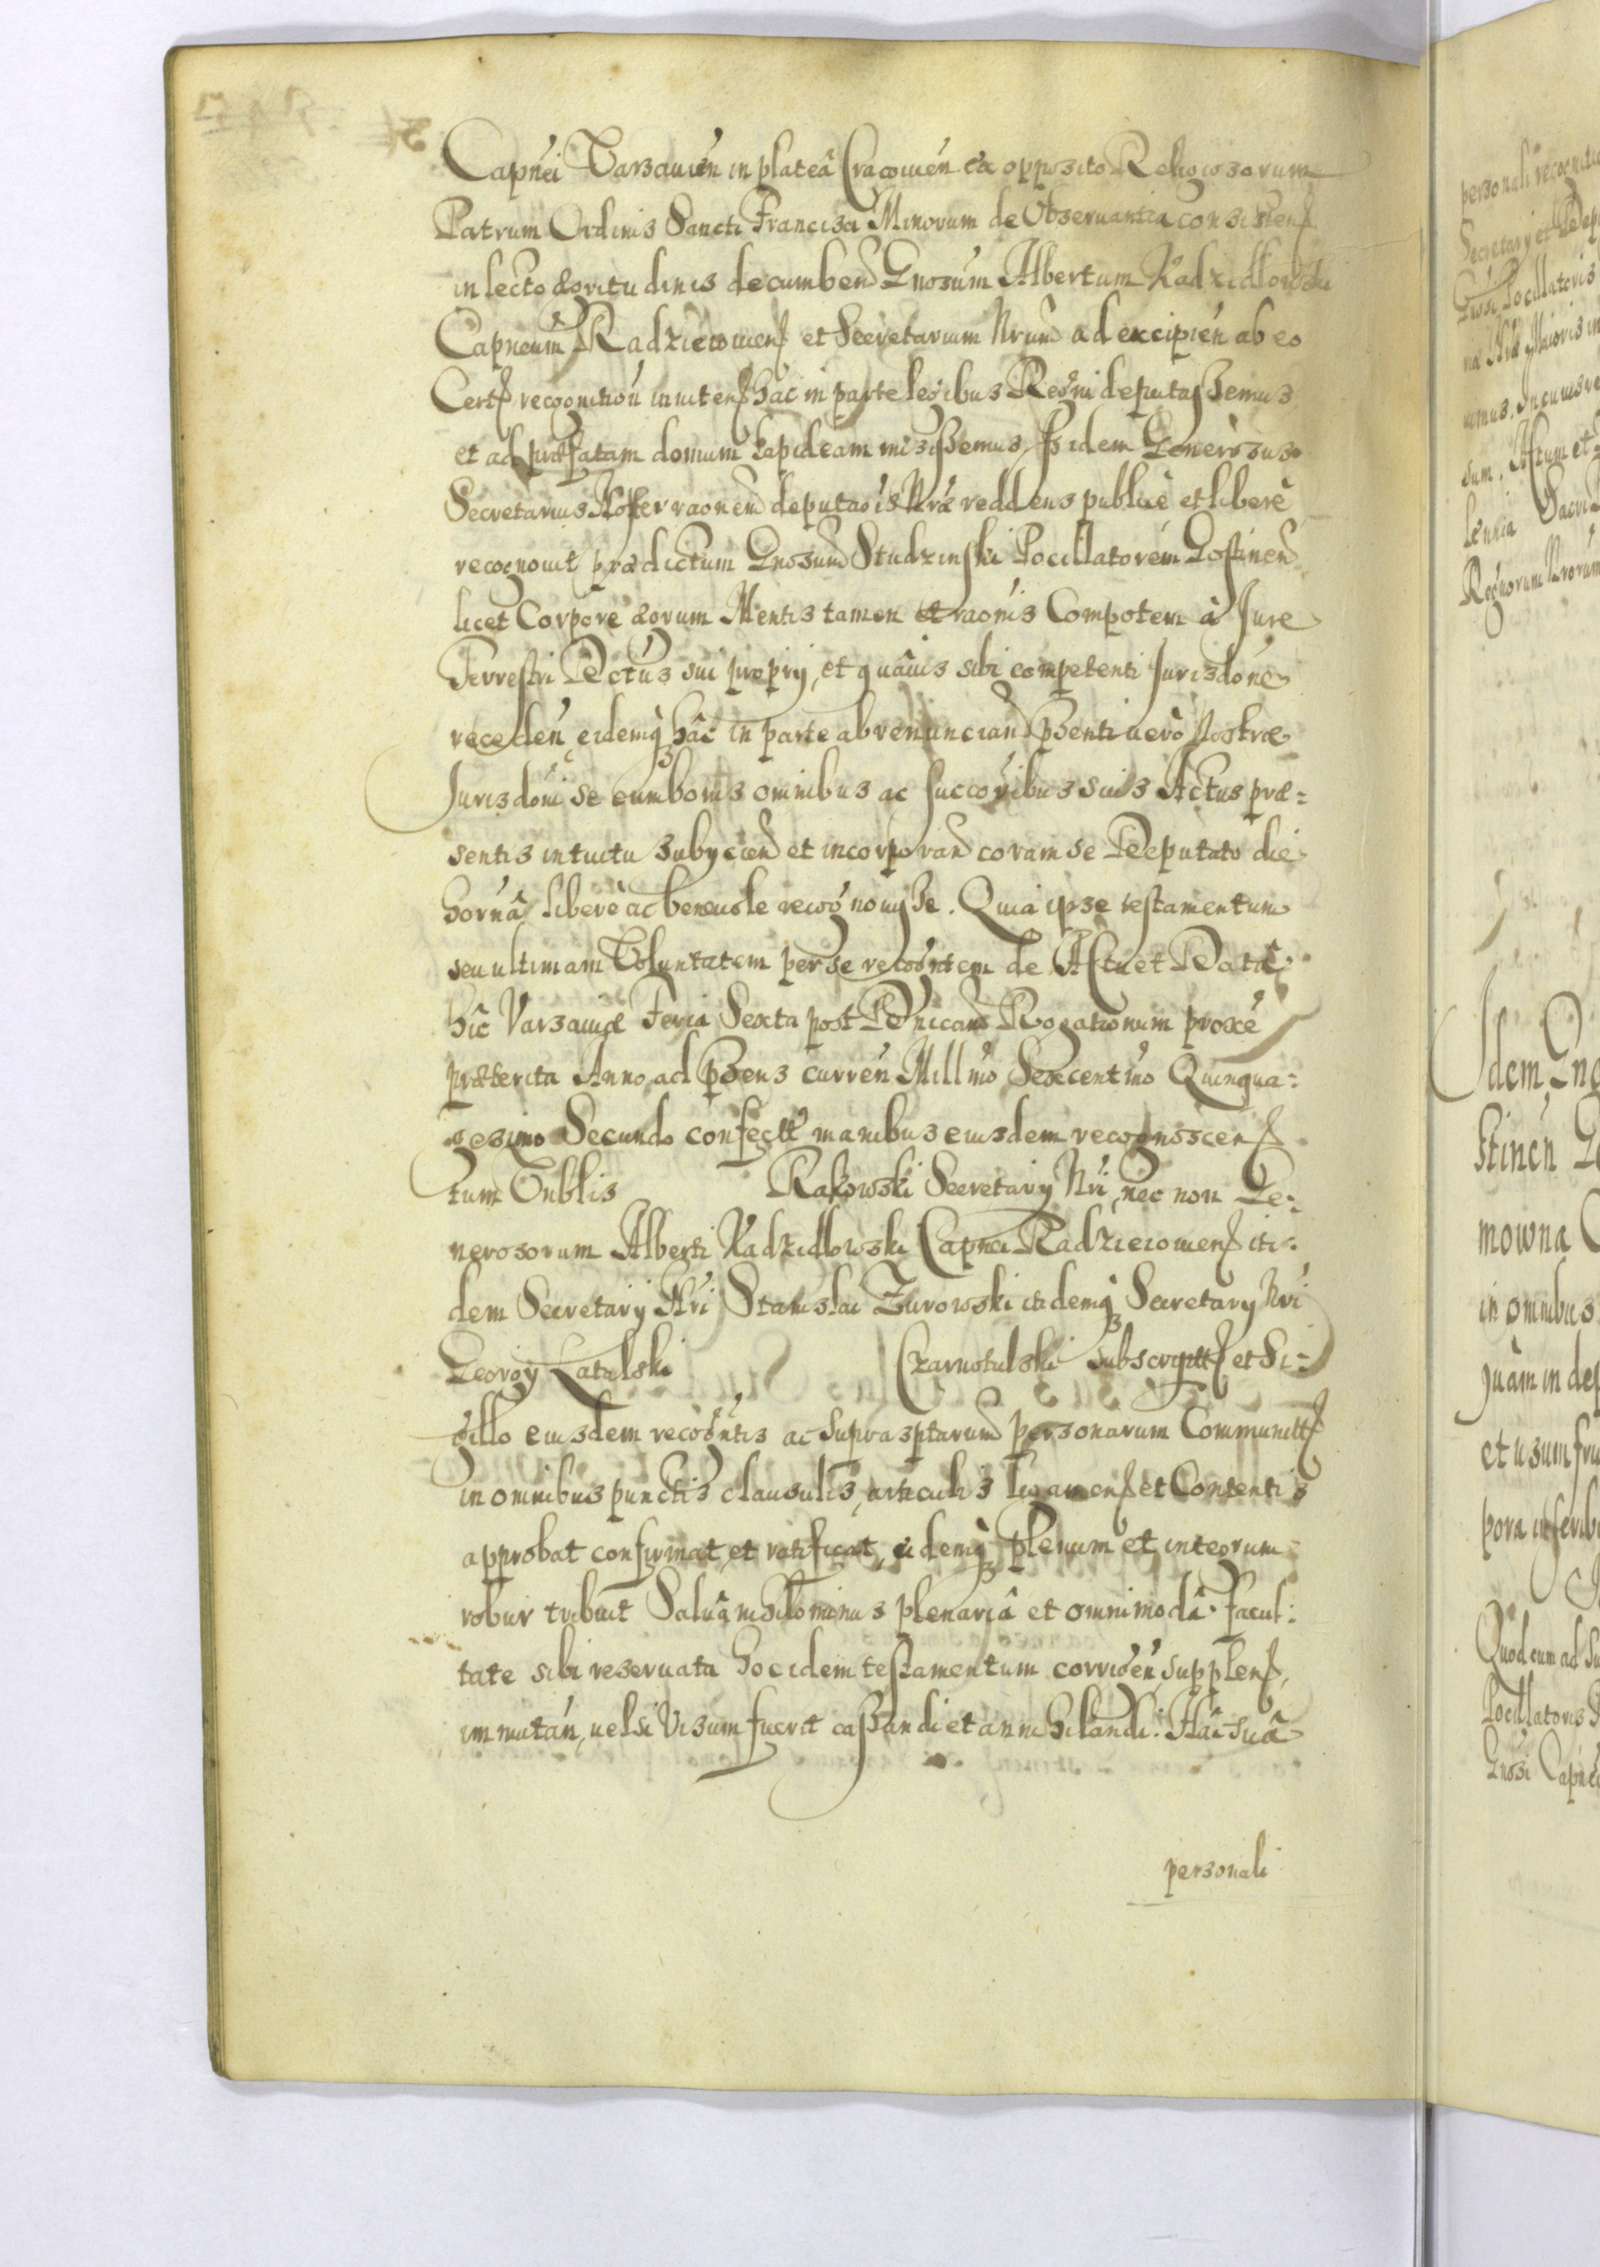 Capnei Varsavien in plateâ Cracovien ex opposito Religiosorum
Patrum Ordinis Sancti Francisci Minorum de Observantia consisten
in lecto ægritudinis decumben Gnosum Albertum Radzidlowski
Capneum Radzieiowien et Secretarium Nrum ad excipien ab eo
Cert recognition inniten hac in parte legibus Regni deputassemus
et ad præfatam domum lapideam misissemus, Is idem Generosus
Secretarius Noster raonem deputaōis Nræ reddens publicè et liberè
recognovit prædictum Gnosum Studzinski Pocillatorem Gostinen
licet Corpore ægrum Mentis tamen et raōnis Compotem à Jure
Terrestri Dctus sui proprij, et quâuis sibi competenti Jurisdōne
receden, eidemq hâc in parte abrenuncian, psenti uerò Nostræ
Jurisdōni se cum bonis omnibus ac succōribus suis Actus præ=
sentis intuitu subijcien et incorporan coram se Deputato die
hornâ liberè ac beneuole recognouisse. Quia ipse testamentum
seu ultimam Voluntatem per se recogntem de Actu et Datâ
hîc Varsauiæ Feria Sexta post Dnicam Rogationum proxè
præterita Anno ad psens curren Millmo Sexcentmo Quinqua=
gesimo Secundo confectt manibus eiusdem recognoscen
tum Nublis Rakowski Secretarij Nri, nec non Ge=
nerosorum Alberti Radzidlowski Capnei Radzieiowien iti=
dem Secretarij Nri Stanislai Zurowski itidemq Secretarij Nri
Georgij Latalski Czarnotulski subscriptt et Si=
gillo eiusdem recogntis ac suprasptarum personarum Communitt
in omnibus punctis clausulis, articulis ligamen et Contentis
approbat confirmat, et ratificat, eidemq plenum et integrum
robur tribuit Saluâ nihilominus plenariâ et omnimodâ facul=
tate sibi reseruata hoc idem testamentum corrigen, supplen,
immutan, uel si Visum fuerit cassandi et annihilandi. Hac suâ
personali
personali recognitio
Secretarij et Dep
Gnosi Pocillatoris
næ Nræ Maioris in
simus. In cuius re
sum. Actum et
lennia Sacri
Regnorum Nrorum
Idem Gno
stinen G
mowna C
in omnibus
quàm in dep
et usumfru
pora inferib
Quod cum ad Su
Pocillatoris
Gnosi Capnei